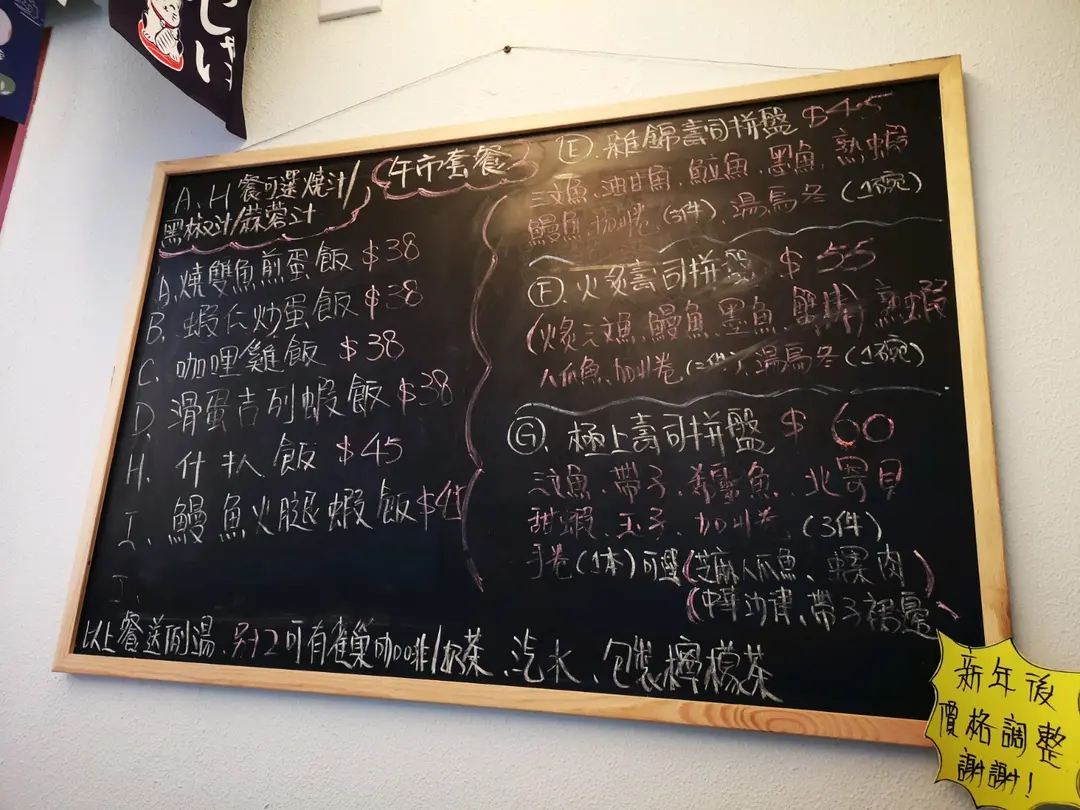 しゃい
午市套餐
A、H餐可選燒汁/
黑椒汁/蒜蓉汁
A.燒雙魚煎蛋飯 $38
B. 蝦仁炒蛋飯 $38
C. 咖哩雞飯 $38
D. 滑蛋吉列蝦飯 $38
H. 什扒飯 $45
I. 鰻魚火腿蝦飯 $45
Ⓔ. 雜錦壽司拼盤 $45
三文魚.油甘魚.魚.墨魚.熟蝦
鰻魚.加州卷(3件).湯烏冬(1碗)
Ⓕ. 火炙壽司拼盤 $55
(火炙三文魚,鰻魚,墨魚,蟹棒)熟蝦
八爪魚、加州卷(件),湯烏冬(1碗)
Ⓖ. 極上壽司拼盤 $60
三文魚.帶子.魚.北寄貝
甜蝦.玉子.加州卷(3件)
手卷(1本)可選(芝麻八爪魚、螺肉)
(中華沙律、帶子裙邊)
以上餐送例湯.另+2可有雀巢咖啡/奶茶、汽水、包裝檸檬茶
新年後
價格調整
謝謝!